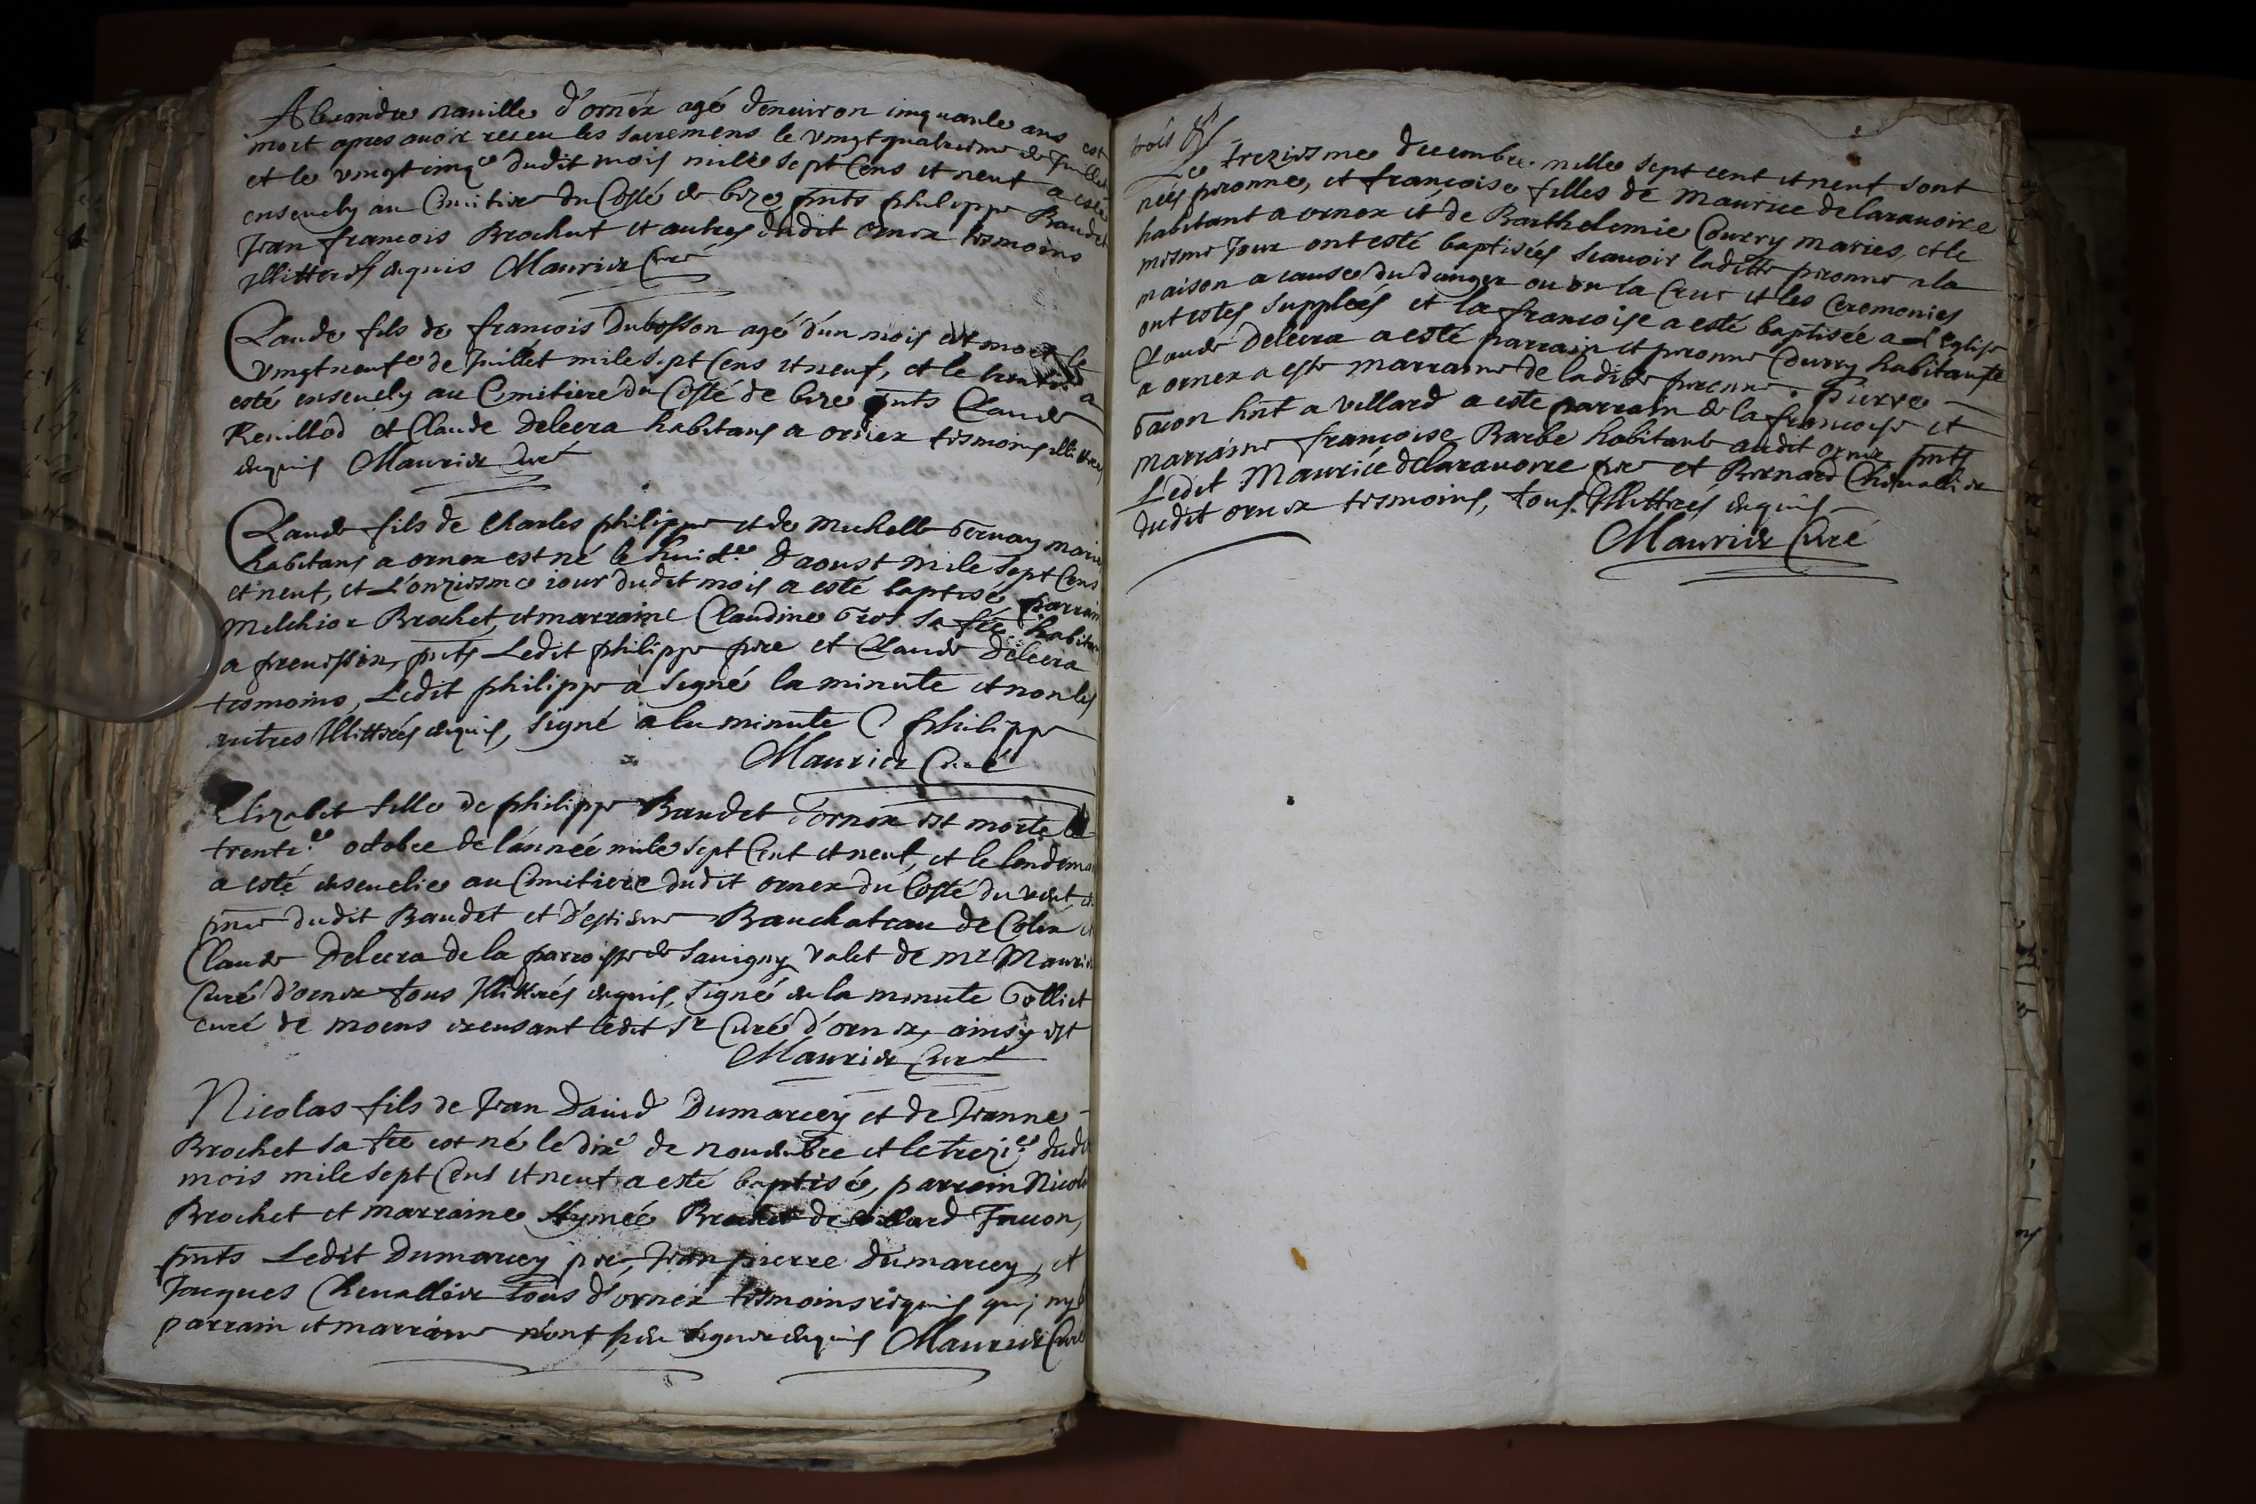 Alexandre nauille d'ornex agé denuiron cinquante ans est
mort apres auoir receu les sacremens le vingt quatriesme de Juillet
et le vingt cinq.e dudit mois mille sept Cens et neuf a esté
enseuely au Cimitiere du Costé de bize pnts philippe Baudet
Jean francois Brochut et autres dudit ornex tesmoins
Illittrés enquis Maurier Curé
Claude fils de francois Dubosson agé d'un mois est mort le
vingt neuf.e de Juillet mile sept Cens et neuf, et le a
esté enseuely au Cimitiere du Costé de bize pnts Claude
Reuillod et Claude Delecra habitans a ornex tesmoins illittres
enquis Maurier Curé
Claude fils de Charles philippe et de Michelle Geruay mariés
habitans a ornex est né le huict.e d'aoust mile sept Cens
et neuf, et L'onziesme iour dudit mois a esté baptisé, parrain
Melchior Brochet, et marraine Claudine Gros sa fe. habitans
a preuessin, pnts Ledit philippe pere et Claude Delecra
tesmoins, Ledit philippe à signé la minute et non les
autres Illittrés enquis, signé a la minute C philippe
Maurier Curé
Elizabet fille de philippe Baudet d'ornex est morte le
trenti.e octobre de l'année mile sept Cent et neuf, et le lendemain
a esté enseuelie au Cimitiere dudit ornex du Costé du vent en
pnce dudit Baudet et d'estienne Bauchateau de Colex et
Claude Delecra de la parroisse de Sauigny valet de Mr Maurier
Curé d'ornex tous Illittrés enquis, signé en la minute Golliet
curé de moens ledit Sr Curé d'ornex, ainsy est
Maurier Curé
Nicolas fils de Jean Dauid Dumarcey et de Jeanne
Brochet sa fe est né le dix.e de nouembre et le trezi.e dudit
mois mile sept Cens et neuf a esté baptisé, parrain Nicolas
Brochet et marraine Aymée Brochet de villard Tacon,
pnts Ledit Dumarcey pere, Jean pierre Dumarcey, et
Jacques Cheuallier tous d'ornex tesmoins requis qui, ny
parrain et marraine n'ont sceu signer enquis Maurier Curé
Le treziesme decembre mille sept cent et neuf sont
néés peronne, et francoise filles de Maurice de laravoire
habitant a ornex et de Barthelemie Durry maries, et le
mesme Jour ont esté baptisées scauoir laditte peronne a la
maison a cause du danger ou on la creue et les Ceremonies
ont estes suppléés et la francoise a esté baptisée a l'Eglise
Claude Delecra a esté parrain et peronne Durry habitante
a ornex a este marraine de ladite peronne. Pierre
Tacon hnt a villard a este parrain de la francoise et
marraine francoise Barbe habitante audit ornex pnts
Ledit Maurice delaravoire pere et Bernard Cheuallier
dudit ornex tesmoins, tous Illittrés enquis
Maurier Curé